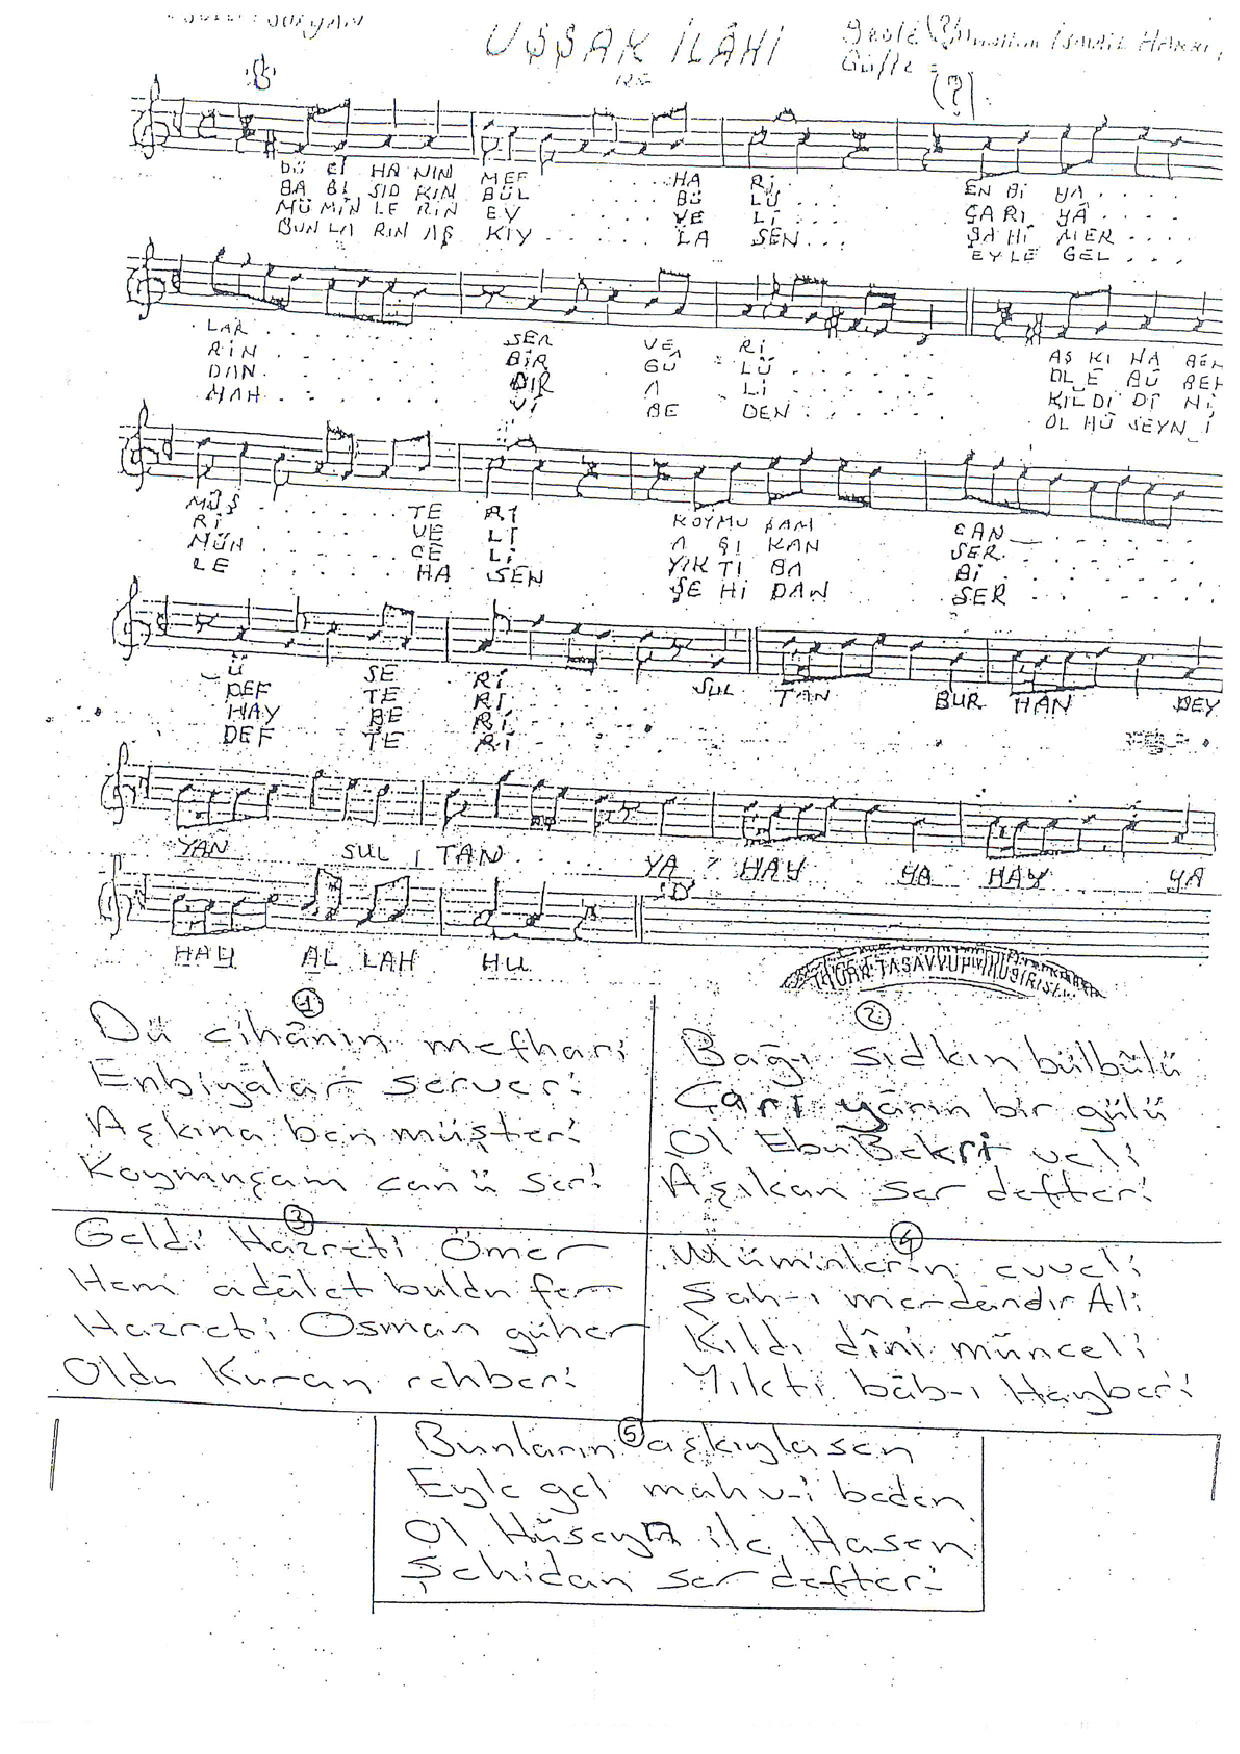 UŞŞAK İLÂHİ
Beste (?) Muallim İSMAİL HAKKI
Güfte = (?)
DÜ Cİ HA NIN MEF . . . . . HA Rİ . . . EN Bİ YA . . . .
BA Ğİ SID KIN BÜL . . . . . BÜ LÜ . . . ÇA RI YÂ . . . .
MÜ MİN LE RİN EV . . . . . VE Lİ . . . ŞA HI MER . . . .
BUN LA RIN AŞ KIY . . . . . LA SEN . . . EY LE GEL . . . .
LAR . . . . . SER VE Rİ . . . . . AŞ KI NA BEN
RİN . . . . . BİR GÜ LÜ . . . . . OL E BÛ BEK
DAN . . . . . DIR A Lİ . . . . . KIL DI DÎ Nİ
MAH . . . . . Vİ BE DEN . . . . . OL HÜ SEYN İ
MÜŞ . . . . . TE Rİ KOYMU ŞAM CAN . . . . .
Rİ . . . . . VE Lİ A ŞI KAN SER . . . . .
MÜN . . . . . CE Lİ YIK TI BA Bİ . . . . .
LE . . . . . HA SEN ŞE Hİ DAN SER . . . . .
Ü SE Rİ . . . . . SUL TAN BUR HAN BEY
DEF TE Rİ
HAY BE Rİ
DEF TE Rİ
YAN SUL TAN . . . . . YA HAY YA HAY YA
HAY AL LAH HU
1
Dü cihânın mefhari
Enbiyâlar serveri
Aşkına ben müşteri
Koymuşam can ü seri
2
Bağ-ı sıdkın bülbülü
Çarı yârın bir gülü
Ol Ebu Bekri veli
Aşıkan ser defteri
3
Geldi Hazreti Ömer
Hem adâlet buldu fer
Hazreti Osman güher
Oldu Kuran rehberi
4
Müminlerin evveli
Şah-ı merdandır Ali
Kıldı dîni münceli
Yıktı bâb-ı Hayberi
5
Bunların aşkıyla sen
Eyle gel mahv-i beden
Ol Hüseyn ile Hasen
Şehidan ser defteri